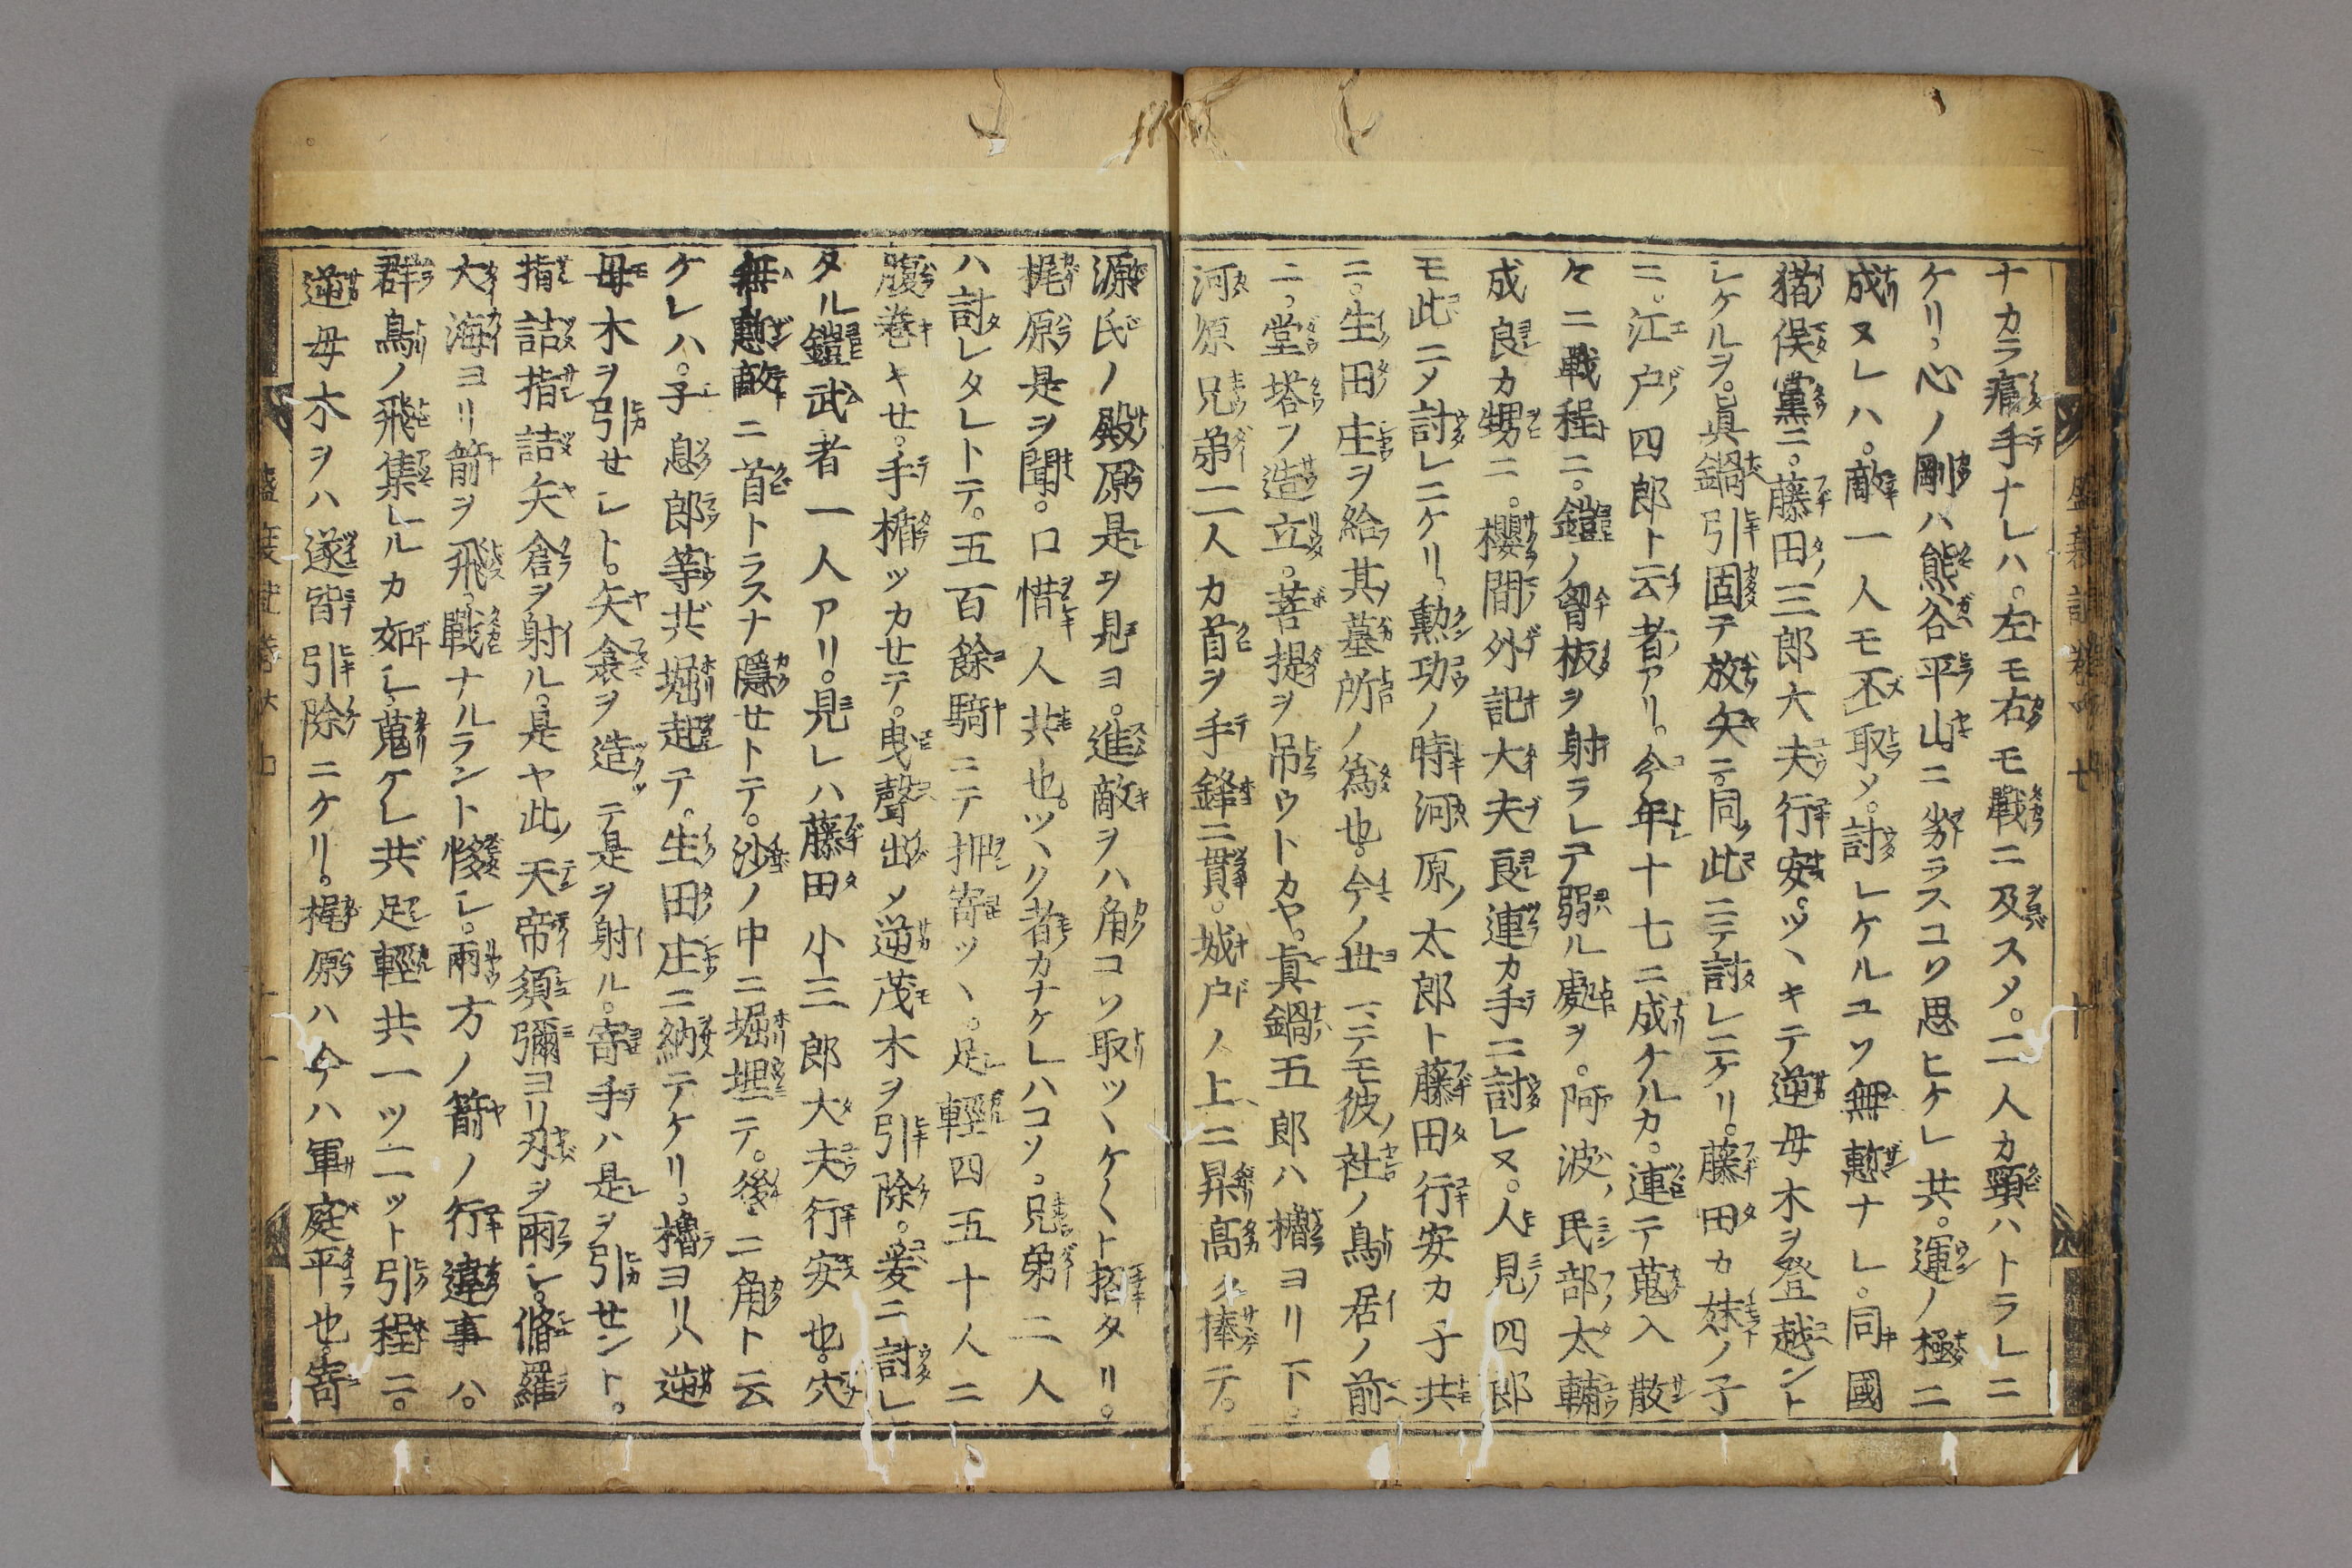 ナカラ痛手ナレハ。左モ右モ戰ニ及スメ。二人カ頸ハトラレニ
ケリ。心ノ剛ハ熊谷平山ニ劣ラスコソ思ヒケレ共。運ノ極ニ
成ヌレハ。敵一人モ不取メ。討レケルコソ無慙ナレ。同國
猪俣黨ニ。藤田三郎大夫行安。ツヽキテ逆母木ヲ登越ント
シケルヲ。眞鍋引固テ放矢ニ。同此ニテ討レニケリ。藤田カ妹ノ子
ニ。江戸四郎ト云者アリ。今年十七ニ成ケルカ。連テ蒐入散
々ニ戰程ニ。鎧ノ胷板ヲ射ラレテ弱ル處ヲ。阿波民部太輔
成良カ甥ニ。櫻間外記大夫良連カ手ニ討レヌ。人見四郎
モ此ニメ討レニケリ。勲功ノ時河原太郎ト藤田行安カ子共
ニ。生田庄ヲ給其墓所ノ爲也。今ノ世ニテモ彼社ノ鳥居ノ前
ニ。堂塔ヲ造立。菩提ヲ吊ウトカヤ。眞鍋五郎ハ櫓ヨリ下。
河原兄弟二人カ首ヲ手鋒ニ貫。城戸ノ上ニ昇高ク捧テ。
源氏ノ殿原是ヲ見ヨ。進敵ヲハ角コソ取ツヽケ〱ト招タリ。
梶原是ヲ聞。口惜人共也。ツヽク者カナケレハコソ。兄弟二人
ハ討レタレトテ。五百餘騎ニテ押寄ツヽ。足輕四五十人ニ
腹卷キセ。手楯ツカセテ。曳聲出メ逆茂木ヲ引除。爰ニ討レ
タル鎧武者一人アリ。見レハ藤田小三郎大夫行安也。穴
無慙敵ニ首トラスナ隱セトテ。沙ノ中ニ堀埋テ。後ニ角ト云
ケレハ。子息郎等共堀起テ。生田庄ニ納テケリ。櫓ヨリハ逆
母木ヲ引セシト。矢衾ヲ造テ是ヲ射ル。寄手ハ是ヲ引セント。
指詰指詰矢倉ヲ射ル。是ヤ此天帝須彌ヨリ刃ヲ雨シ。脩羅
大海ヨリ箭ヲ飛。戰ナルラント惨シ。兩方ノ箭ノ行違事ハ。
群鳥ノ飛集ルカ如シ。蒐ケレ共足輕共一ツ二ツト引程ニ。
逆母木ヲハ遂皆引除ニケリ。梶原ハ今ハ軍庭平也。寄